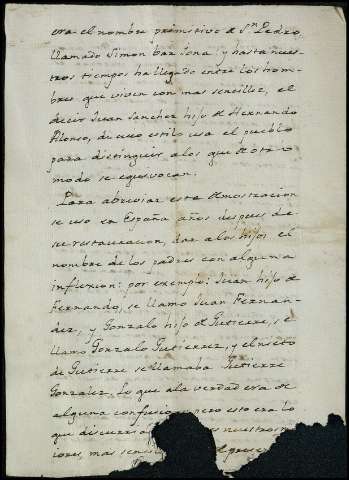 era el nombre primitivo de Sn. Pedro,
llamado Simon bar Jona: y hasta nues=
tros tiempos ha llegado entre los hom=
bres que viven con mas sencillez, el
decir Juan Sanchez hijo de Hernando
Alonso, de cuio estilo usa el pueblo
para distinguir a los que de otro
modo se equivocan.
Para abreviar esta demostracion
se uso en España años despues de
su restauracion, dar a los hijos el
nombre de los padres con alguna
inflexion: por exemplo: Juan hijo de
Fernando, se llamó Juan Fernan=
dez, y Gonzalo hijo de Gutierre, se
llamo Gonzalo Gutierrez, y el nieto
de Gutierre se llamaba Gutierre
Gonzalez, lo que a la verdad era de
alguna confusion, pero esto era lo
que discurr nuestros m
iores, mas